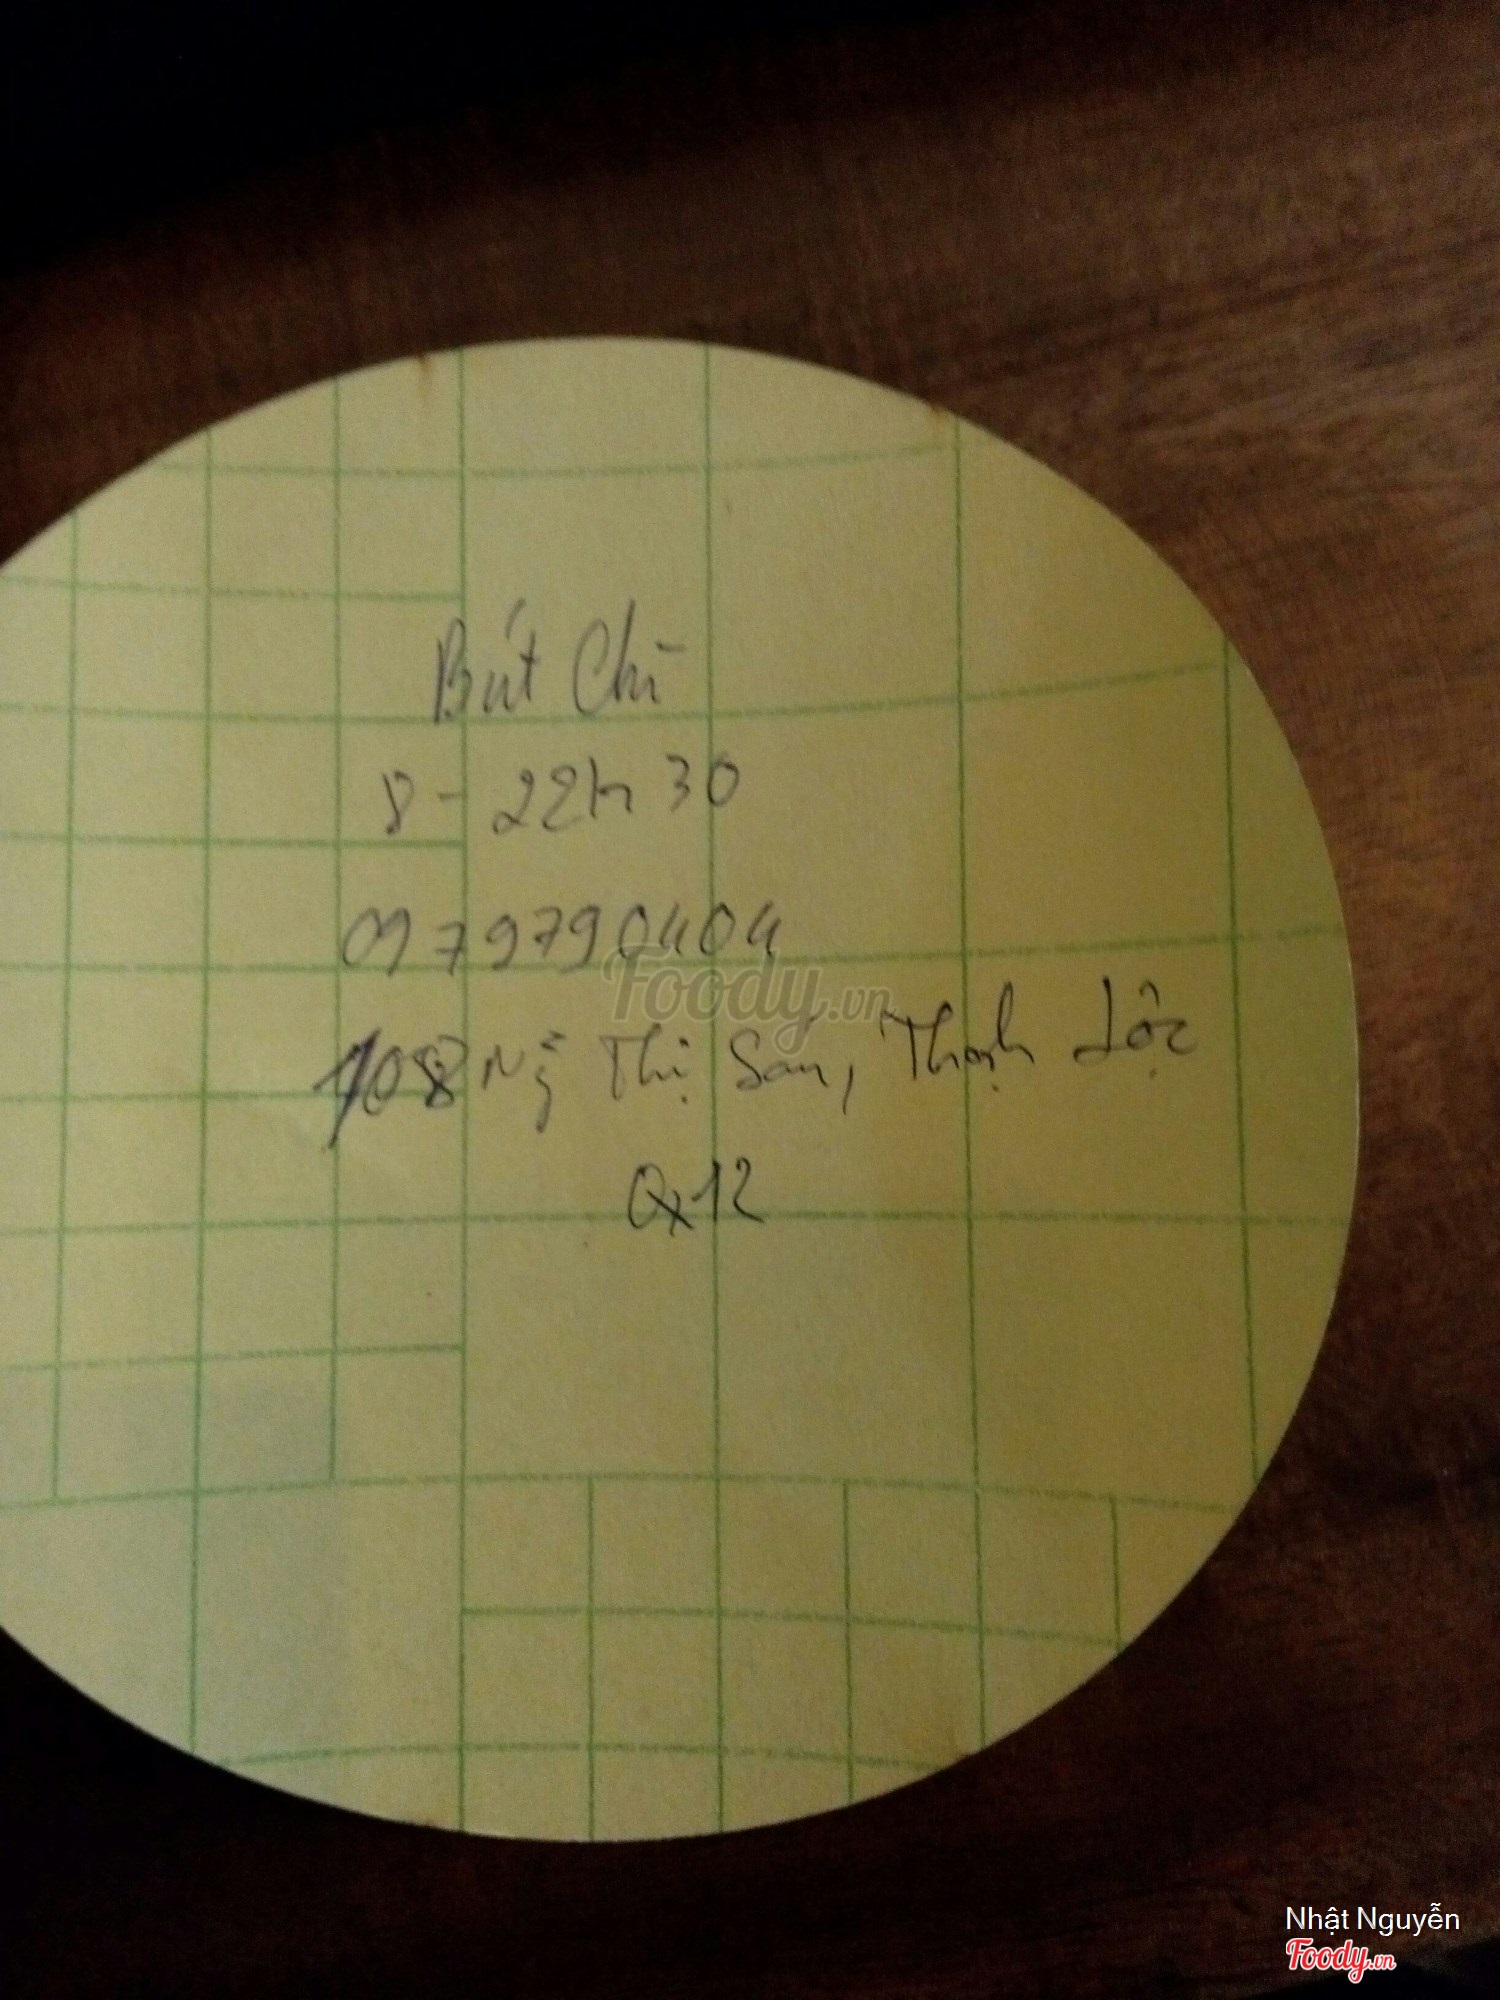 Bút Chì
8 - 22h 30
0979790404
108 Ng~ Thị Sáu, Thạnh Lộc
Q 12
Foody.vn
Nhật Nguyễn
Foody.vn